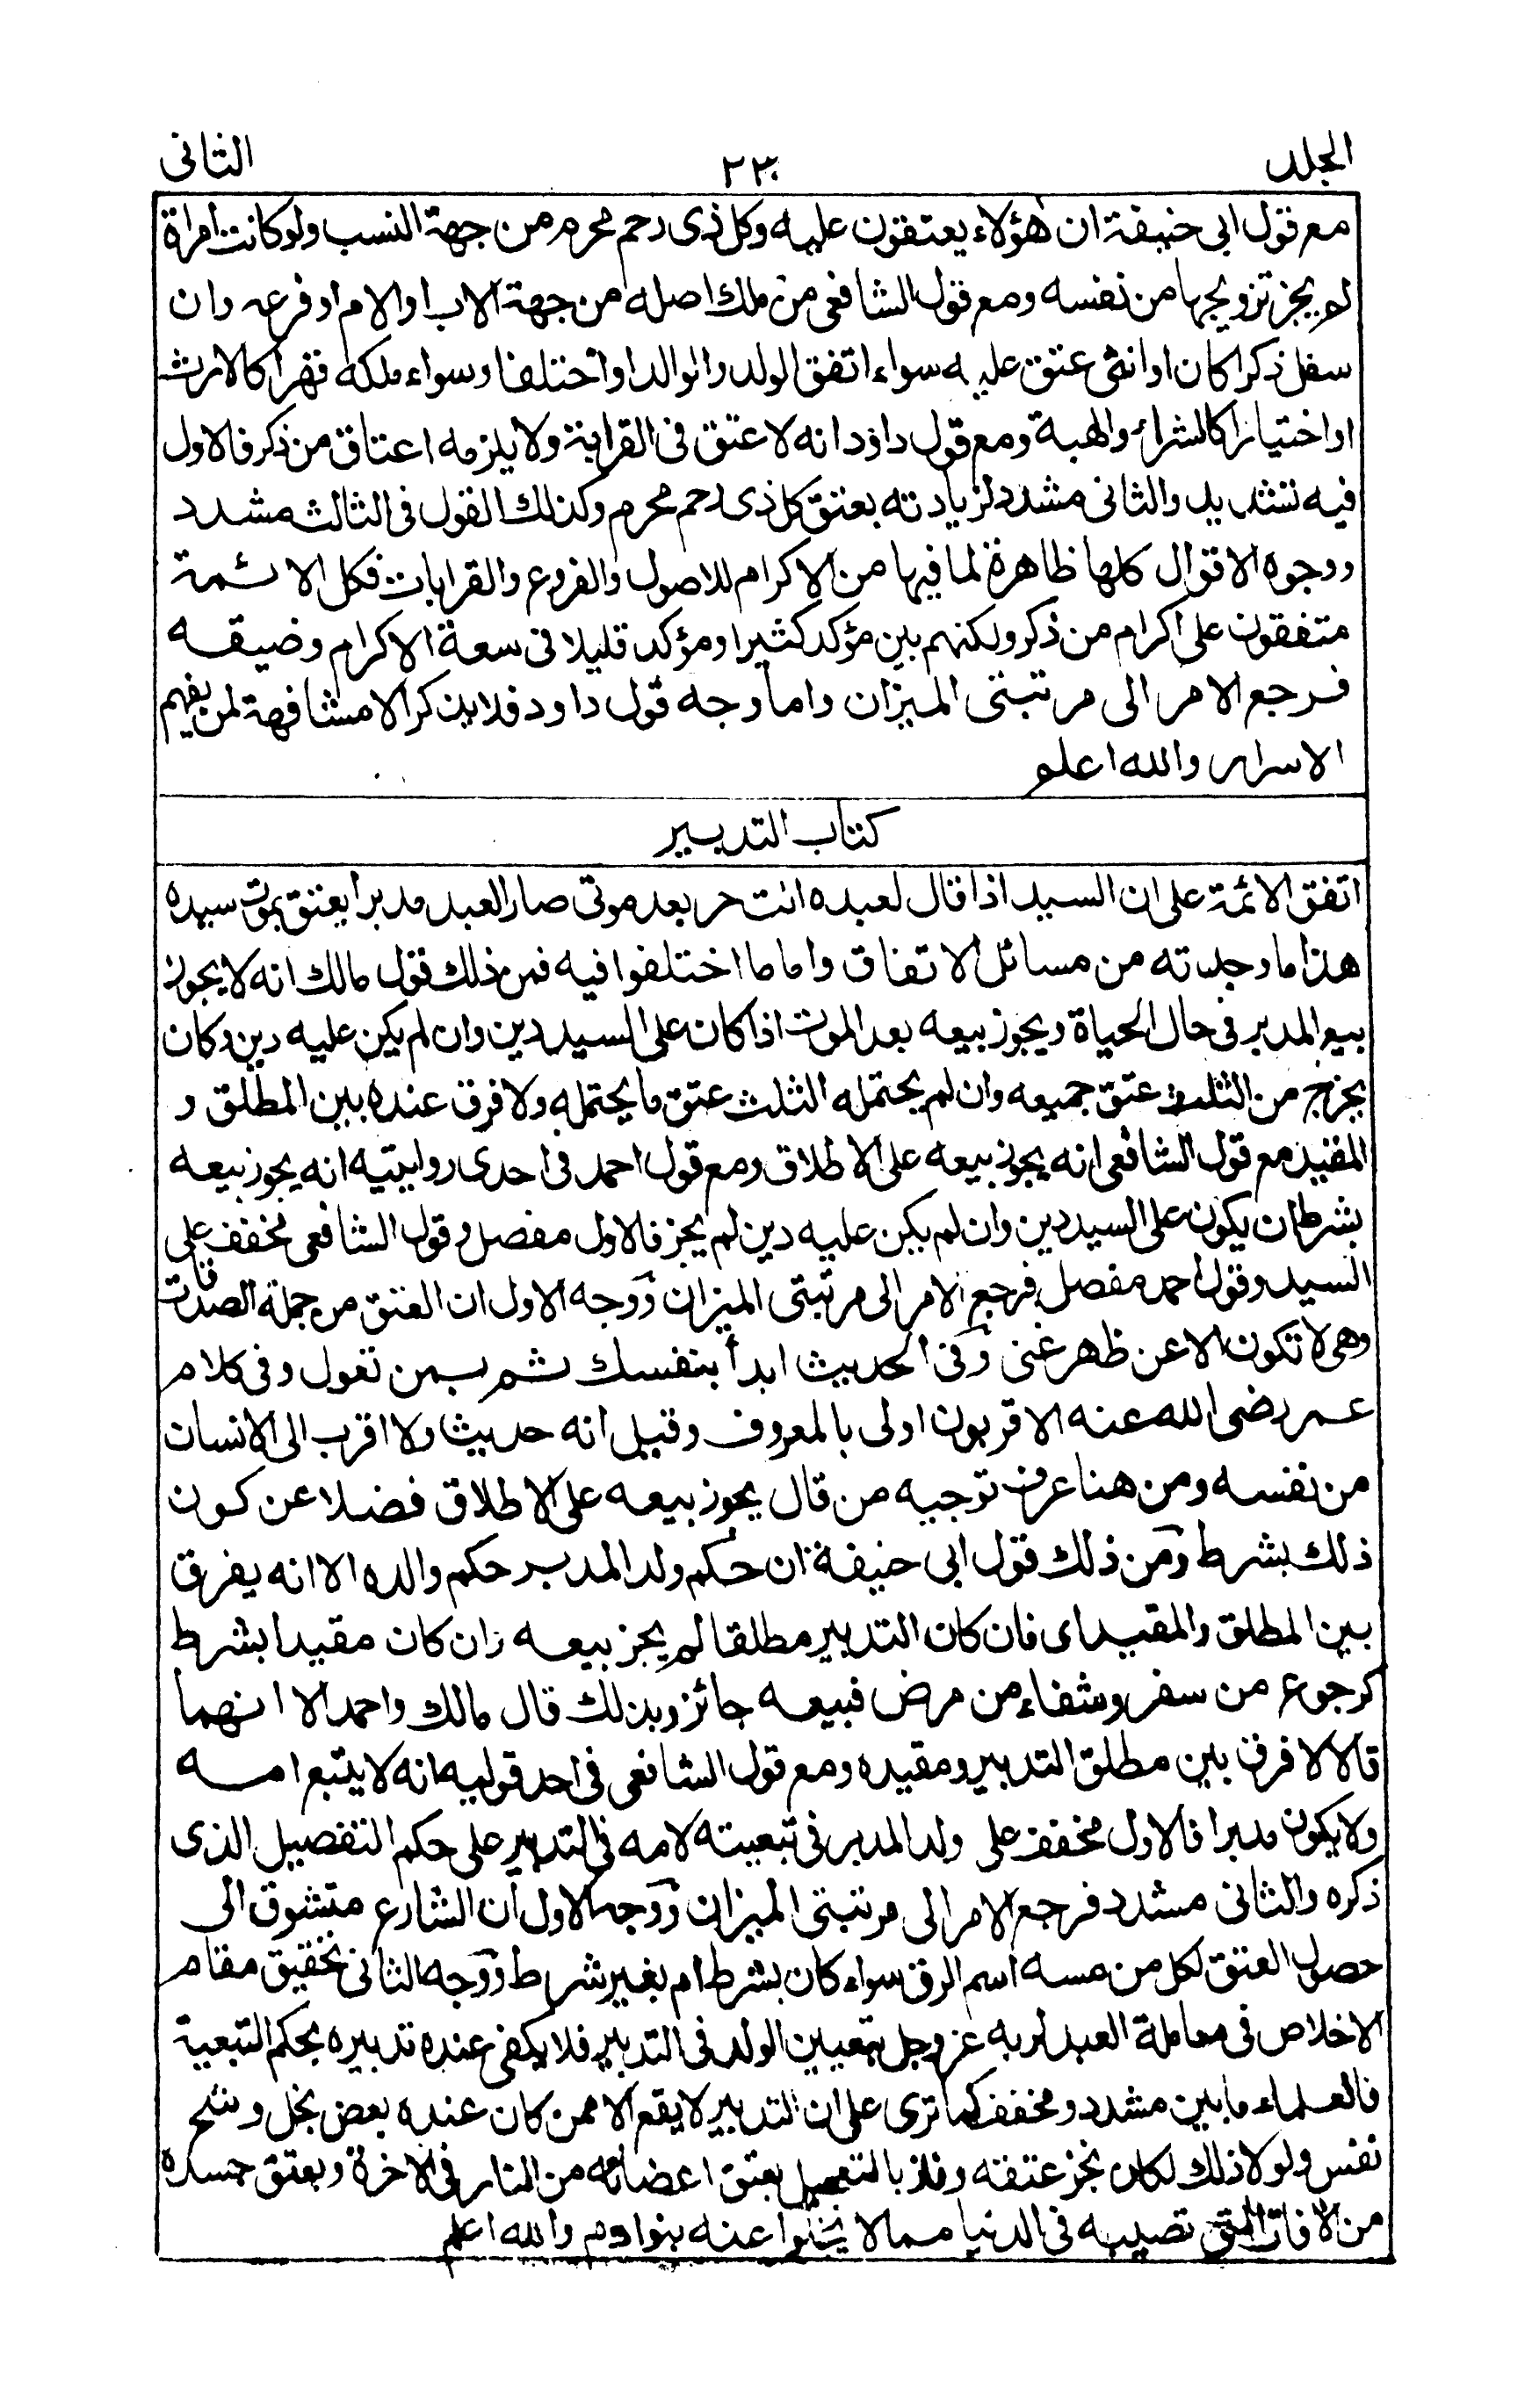 الجلد
٢٣٠
الثانى
مع قول ابى حنيفة ان هؤلاء يعتقون عليه وكل ذى رحم محرم من جهة النسب ولو كانت امراة
لم يجز تزويجها من نفسه ومع قول الشافعى من ملك اصله من جهة الاب او الام او فرعه وان
سفل ذكرا كان او انثى عتق عليه سواء اتفق الولد والوالد او اختلفا وسواء ملكه قهرا كالارث
او اختيارا كالشراء والهبة ومع قول داؤد انه لا عتق فى القرابة ولا يلزمه اعتاق من ذكر فالاول
فيه تشديد والثانى مشدد لزيادته بعتق كل ذى رحم محرم وكذلك القول فى الثالث مشدد
ووجوه الاقوال كلها ظاهرة لما فيها من الاكرام للاصول والفروع والقرابات فكل الائمة
متفقون على اكرام من ذكر ولكنهم بين مؤكد كثيرا ومؤكد قليلا فى سعة الاكرام وضيقه
فرجع الامر الى مرتبتى الميزان واما وجه قول داود فلا يذكر الا مشافهة لمن يفهم
الاسرار والله اعلم
كتاب التدبير
اتفق الائمة على ان السيد اذا قال لعبده انت حر بعد موتى صار العبد مدبرا يعتق بموت سيده
هذا ما وجدته من مسائل الاتفاق واما ما اختلفوا فيه فمن ذلك قول مالك انه لا يجوز
بيع المدبر فى حال الحياة ويجوز بيعه بعد الموت اذا كان على السيد دين وان لم يكن عليه دين وكان
يخرج من الثلث عتق جميعه وان لم يحتمله الثلث عتق ما يحتمله ولا فرق عنده بين المطلق و
المقيد مع قول الشافعى انه يجوز بيعه على الاطلاق ومع قول احمد فى احدى روايتيه انه يجوز بيعه
بشرط ان يكون على السيد دين وان لم يكن عليه دين لم يجز فالاول مفصل وقول الشافعى مخفف على
السيد وقول احمد مفصل فرجع الامر الى مرتبتى الميزان ووجه الاول ان العتق من جملة الصدقات
وهى لا تكون الا عن ظهر غنى وفى الحديث ابدأ بنفسك ثم بمن تعول وفى كلام
عمر رضى الله عنه الاقربون اولى بالمعروف وقيل انه حديث ولا اقرب الى الانسان
من نفسه ومن هنا عرف توجيه من قال يجوز بيعه على الاطلاق فضلا عن كون
ذلك بشرط ومن ذلك قول ابى حنيفة ان حكم ولد المدبر حكم والده الا انه يفرق
بين المطلق والمقيد اى فان كان التدبير مطلقا لم يجز بيعه وان كان مقيدا بشرط
كرجوع من سفر وشفاء من مرض فبيعه جائز وبذلك قال مالك واحمد الا انهما
قالا لا فرق بين مطلق التدبير ومقيده ومع قول الشافعى فى احد قوليه انه لا يتبع امه
ولا يكون مدبرا فالاول مخفف على ولد المدبر فى تبعيته لامه فى التدبير على حكم التفصيل الذى
ذكره والثانى مشدد فرجع الامر الى مرتبتى الميزان ووجه الاول ان الشارع متشوق الى
حصول العتق لكل من مسه اسم الرق سواء كان بشرط ام بغير شرط ووجه الثانى تحقيق مقام
الاخلاص فى معاملة العبد لربه عز وجل بتعيين الولد فى التدبير فلا يكفى عنده تدبيره بحكم التبعية
فالعلماء ما بين مشدد ومخفف كما ترى على ان التدبير لا يقع الا ممن كان عنده بعض بخل وشح
نفس ولولا ذلك لكان نجز عتقه وفاز بالتعجيل بعتق اعضائه من النار فى الاخرة وبعتق جسده
من الافات التى تصيبه فى الدنيا مما لا يخلوا عنه بنو ادم والله اعلم